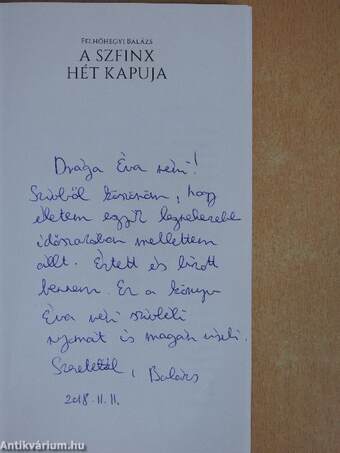 FELHŐHEGYI BALÁZS
A SZFINX
HÉT KAPUJA
Drága Éva néni!
Szívből köszönöm, hogy
életem egyik legnehezebb
időszakában mellettem
állt. Értett és bízott
bennem. Ez a könyv
Éva néni szívbéli
nyomait is magán viseli.
Szeretettel, Balázs
2018.11.11.
Antikvárium.hu